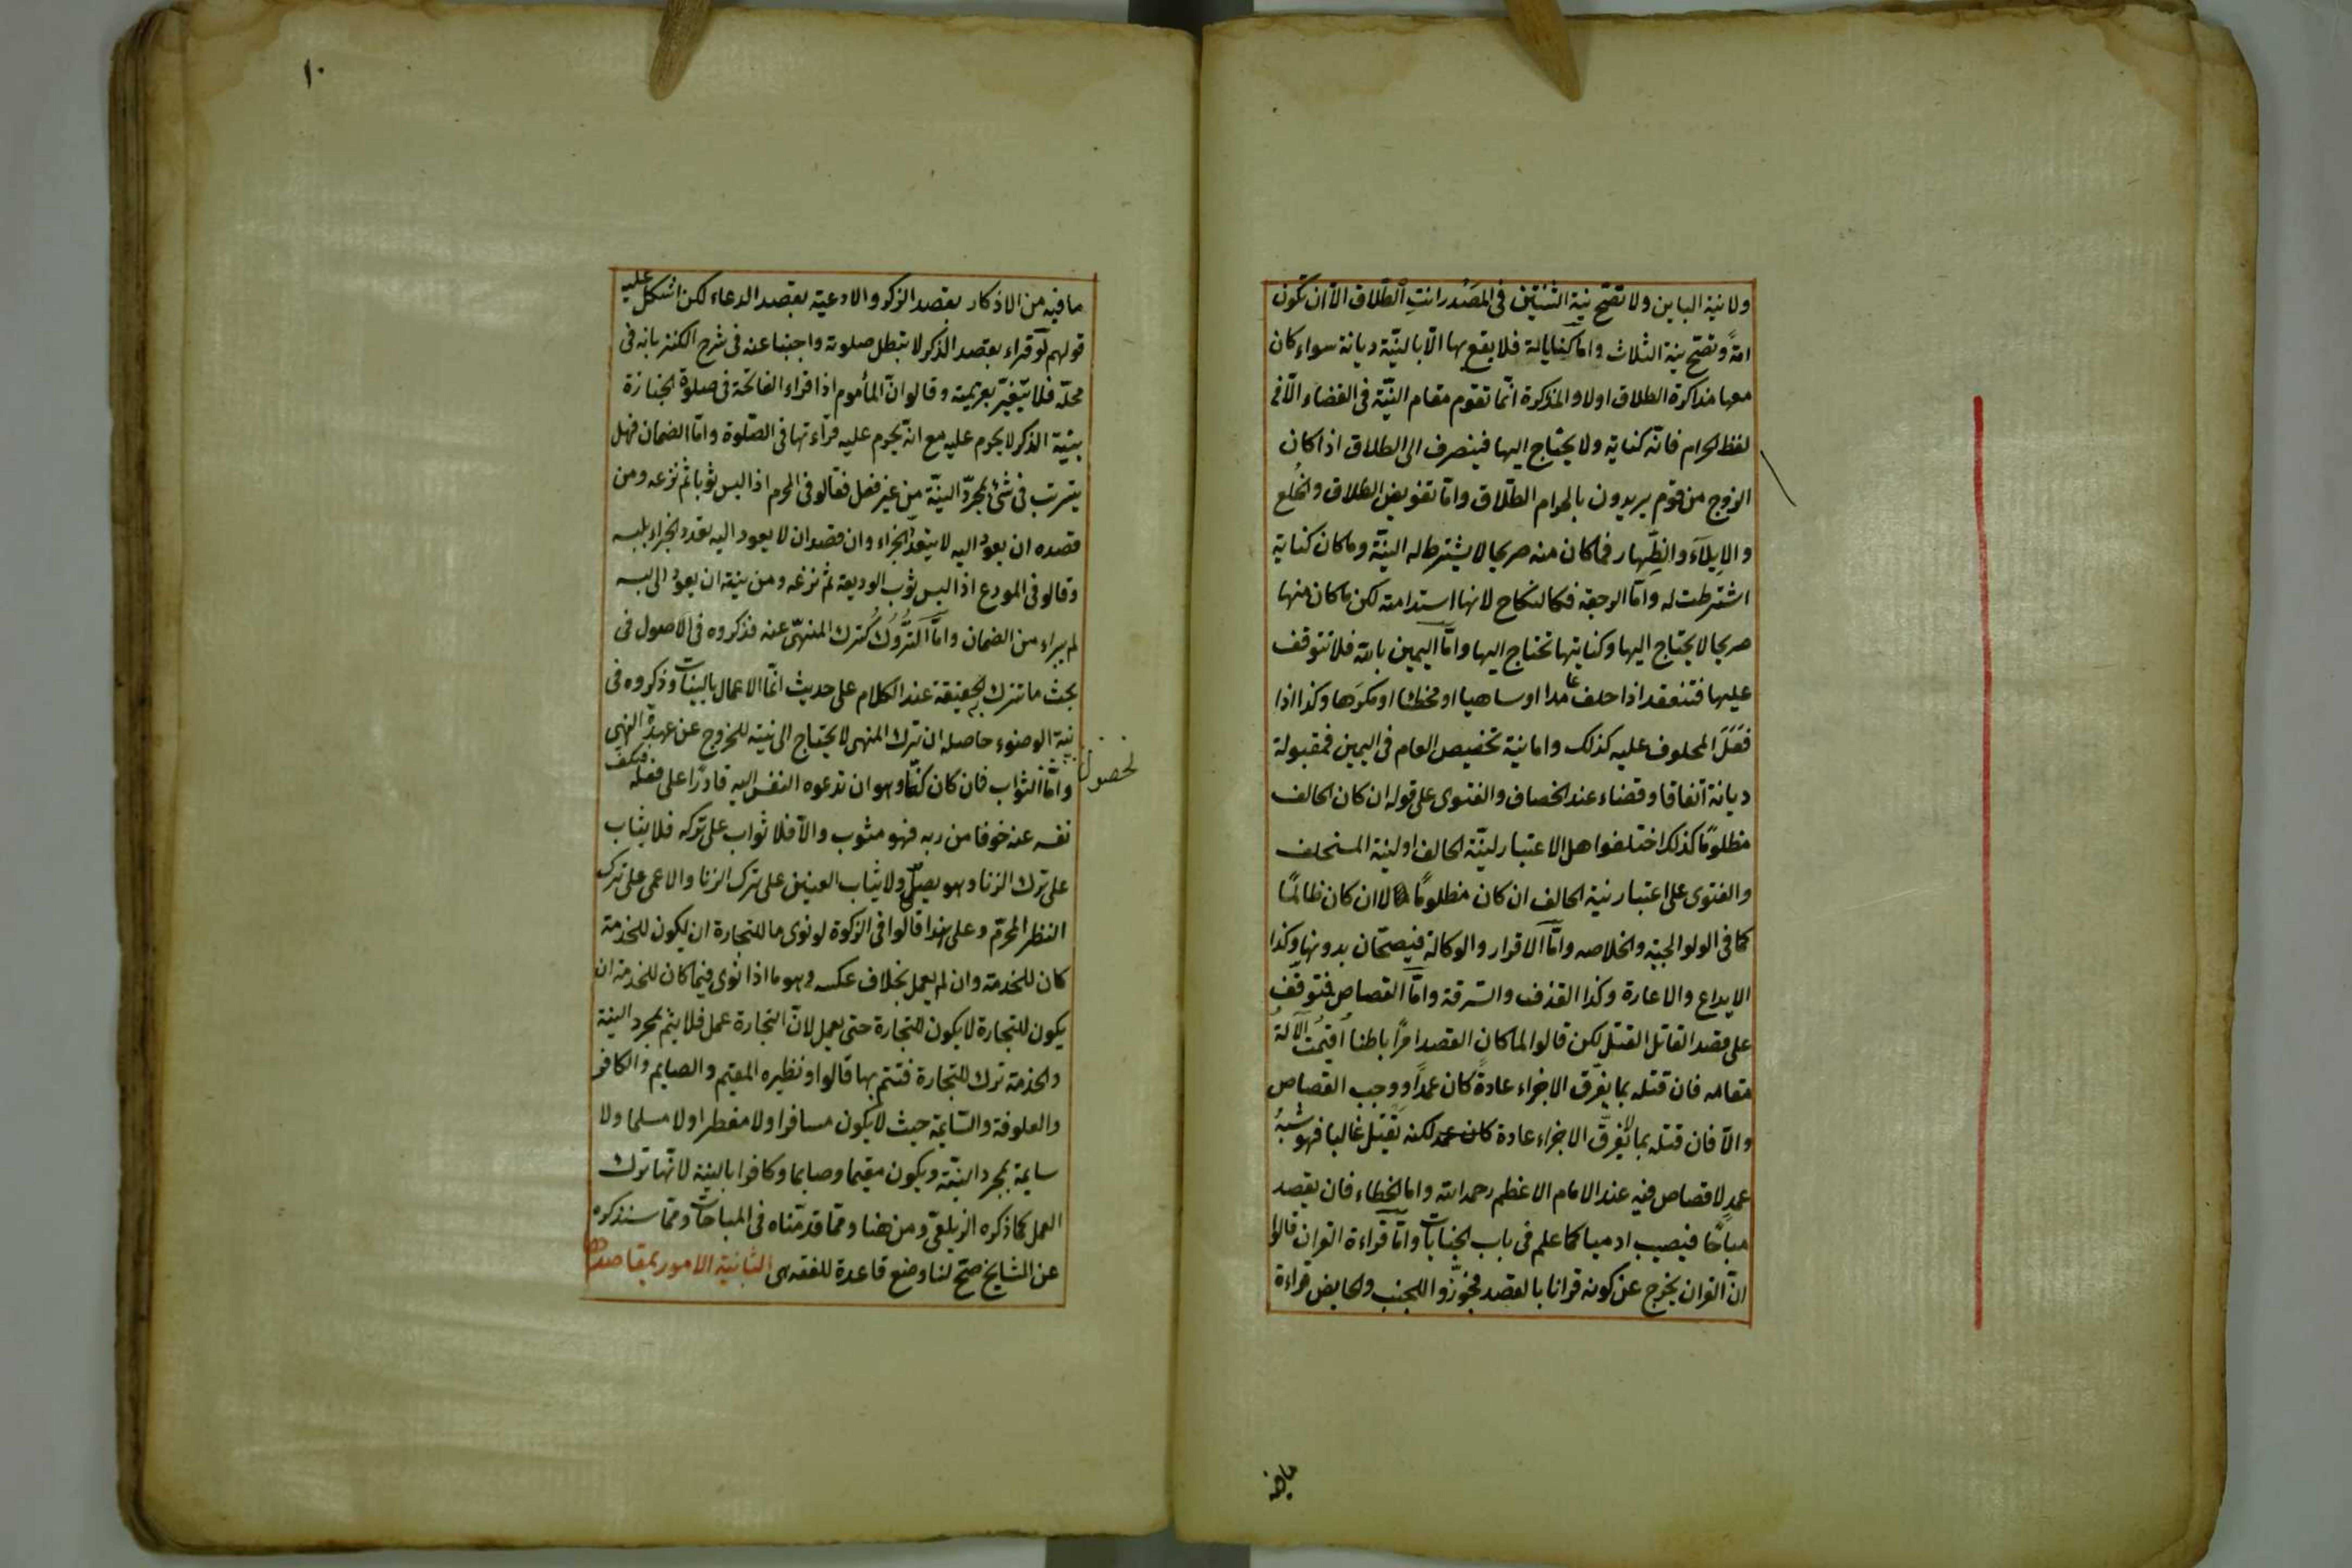 ولا نية الباين ولا تصحّ نية الثنتين في المَصْدر انتِ الطّلاق الّا ان تكون
امةً وتصحّ نية الثلاث واما كناياته فلا يقع بها الّا بالنيّة ديانة سواء كان
معها مذاكرة الطلاق اولا والمذكرة انّما تقوم مقام النيّة في القضاء الّا في
لفظ الحرام فانّه كناية ولا يحتاج اليها فينصرف الى الطلاق اذا كان
الزوج من قوم يريدون بالحرام الطّلاق وامّا تفويض الطلاق والخُلع
والايلآء والظِّهار فما كان منه صريحا لا يشترط له النيّة وما كان كناية
اشترطت له وامّا الرجعة فكالنكاح لانها استدامته لكن ما كان منها
صريحا لا يحتاج اليها وكنايتها تحتاج اليها وامّا اليمين بالله فلا تتوقف
عليها فتنعقد اذا حلف عامدا او ساهيا او مخطئا او مكرَها وكذا اذا
فَعَلَ المحلوف عليه كذلك واما نية تخصيص العام في اليمين فمقبولة
ديانة اتفاقا وقضاء عند الخصاف والفتوى على قوله ان كان الحالف
مظلومًا كذلك اختلفوا هل الاعتبار لنيّة الحالف او لنية المستحلف
والفتوى على اعتبار نية الحالف ان كان مظلومًا لا ان كان ظالمًا
كما في الولوالجية والخلاصه وامّا الاقرار والوكالة فيصحّان بدونها وكذا
الايداع والاعارة وكذا القذف والسّرقة وامّا القصاص فتوقّف
على قصد القاتل القتل لكن قالوا لما كان القصد امرًا باطنا اُقيمت الآلةُ
مقامه فان قتله بما يفرّق الاجزاء عادةً كان عمدًا ووجب القصاص
والّا فان قتله بما لا يفرّق الاجزاء عادة كان عمد لكنه يقتل غالبا فهو شبهُ
عمدٍ لا قصاص فيه عند الامام الاعظم رحمه الله واما الخطاء فان يقصد
مباحًا فيصيب ادميا كما علم في باب الجنايات وامّا قراءة القران قالوا
انّ القران يخرج عن كونه قرانا بالقصد فجوّزوا للجنب والحايض قراءة
مافيه
١٠
ما فيه من الاذكار بقصد الذكر والادعية بقصد الدعاء لكن اشكل عليه
قولهم لو قراء بقصد الذكر لا تبطل صلوته واجبنا عنه في شرح الكنز بانه في
محلّه فلا يتغيّر بعزيمته وقالو انّ المأموم اذا قراء الفاتحة في صلوة الجنازة
بنيّة الذكر لا يحرم عليه مع انّه يحرم عليه قراءتها في الصّلوة وامّا الضمان فهل
يترتب في شئ بمجرّد النيّة من غير فعل فقالو في المحرم اذا لبس ثوبا ثم نزعه ومن
قصده ان يعود اليه لا يتعدّد الجزاء وان قصد ان لا يعود اليه تعدد الجزاء بلبسه
وقالو في المودع اذا لبس ثوب الوديعة ثم نزعه ومن نيته ان يعود الى لبسه
لم يبراء من الضمان وامّا التُّروُكُ كترك المنهيّ عنه فذكروه في الاصول في
بحث ما تترك به الحقيقة عند الكلام على حديث انّما الاعمال بالنيّات وذكروه في
نيّة الوضوء حاصله ان ترك المنهى لا يحتاج الى نيّته للخروج عن عهدة النهى
لحصول
وامّا الثواب فان كان كفّا وهو ان تدعوه النفس اليه قادرًا على فعله فيكف
نفسه عنه خوفا من ربه فهو مثوب والّا فلا ثواب على تركه فلا يثاب
على ترك الزنا وهو يصلّى ولا يثاب العينين على ترك الزنا والاعمى على ترك
النظر المحرّم وعلى هذا قالوا في الزكوة لو نوى ما للتجارة ان يكون للخدمة
كان للخدمة وان لم يعمل بخلاف عكسه وهو ما اذا نوى فيما كان للخدمة ان
يكون للتجارة لا يكون للتجارة حتى يعمل لانّ التجارة عمل فلا يتم بمجرد النية
والخدمة ترك للتجارة فتتم بها قالوا ونظيره المقيم والصايم والكافر
والعلوفة والسّايمة حيث لا يكون مسافرا ولا مفطرا ولا مسلما ولا
سايمة بمجرد النيّة ويكون مقيما وصايما وكافرا بالنية لانّها ترك
العمل كما ذكره الزيلعيّ ومن هنا وممّا قدمّناه في المباحات وممّا سنذكره
عن المشايخ صحّ لنا وضع قاعدة للفقه هى الثانية الامور بمقاصدها